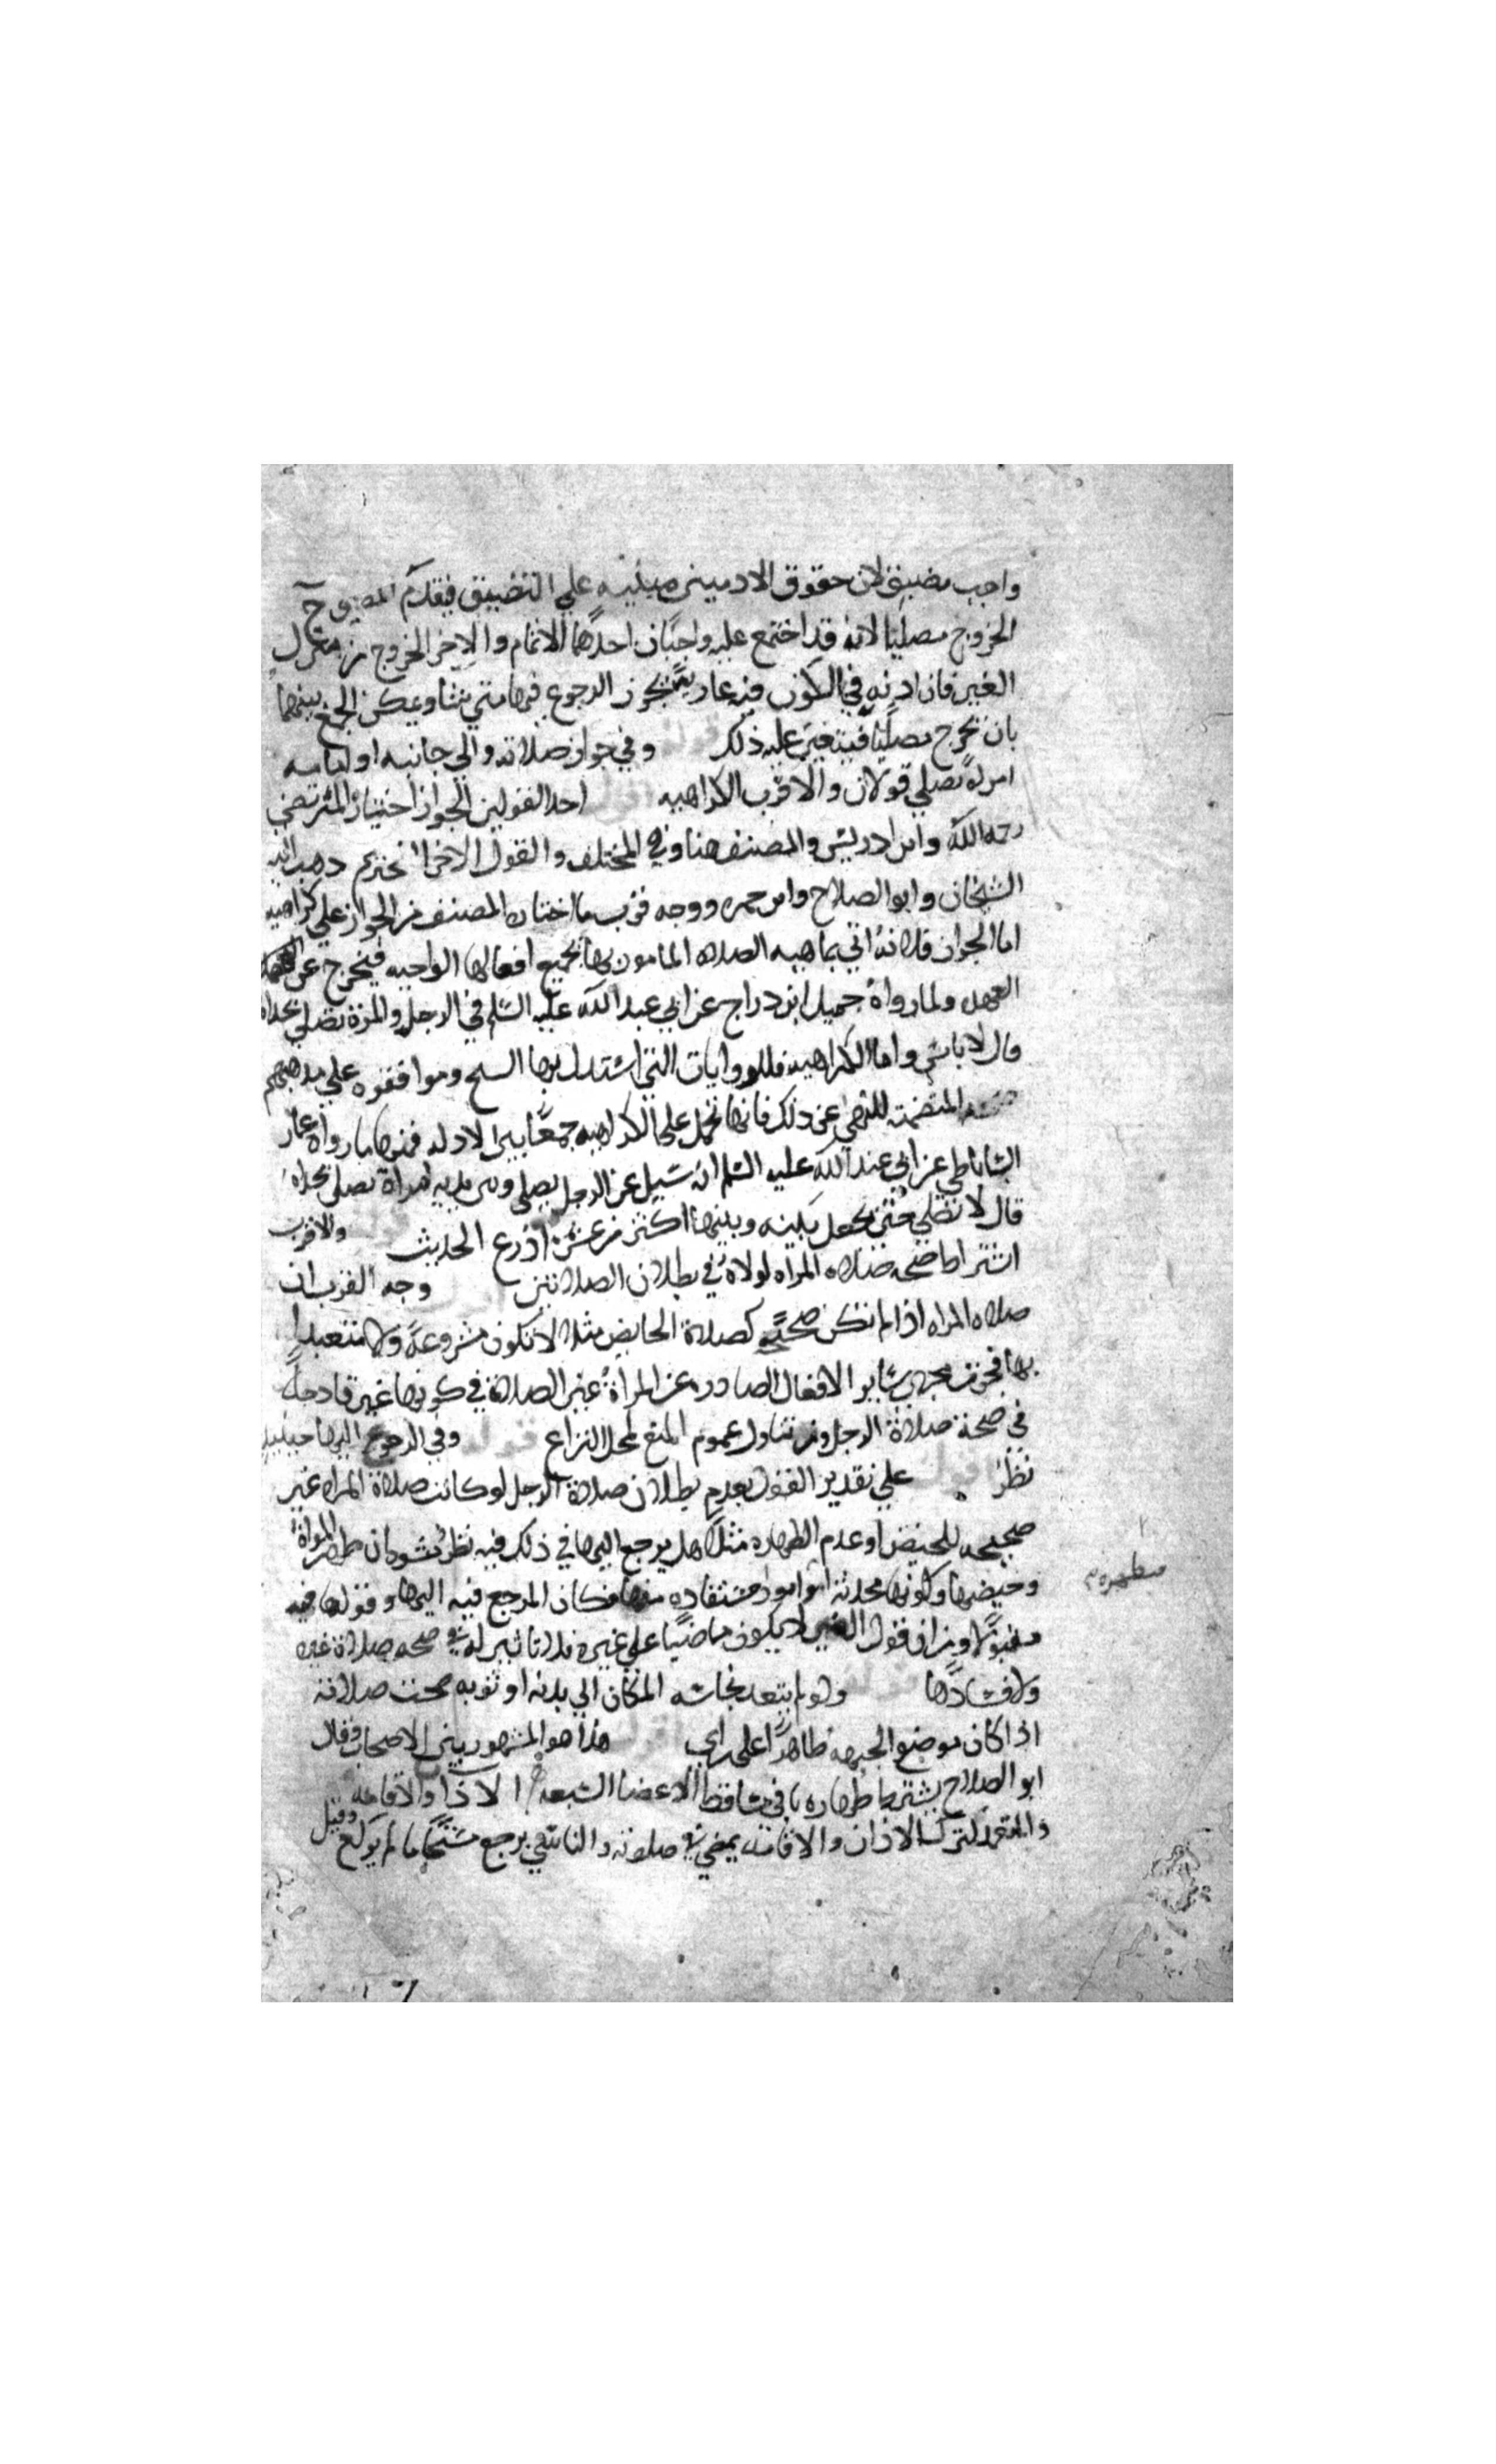 واجب مضيق لان حقوق الادميين مبنيه علي التضييق فيقدم المضيق ح
الخروج مصليا لانه قد اجتمع عليه واجبان احدهما الاتمام والاخر الخروج من منزل
الغير فان اذنه في الكون فيه عارية يجوز الرجوع فيها متي شا ويمكن الجمع بينهما
بان يخرج مصليا فيتعين عليه ذلك قوله وفي جواز صلاته والي جانبه او امامه
امراة تصلي قولان والاقرب الكراهيه اقول احد القولين الجواز اختيار المرتضي
رحمه الله وابن ادريس والمصنف هنا وفي المختلف والقول الاخر التحريم ذهب اليه
الشيخان وابو الصلاح وابن حمزه ووجه قرب ما اختاره المصنف من الجواز علي كراهيه
اما الجواز فلانه اتي بماهيه الصلاه المامور بها بجميع افعالها الواجبه فيخرج عن
العهده ولما رواه جميل ابن دراج عن ابي عبد الله عليه السلم في الرجل والمرة تصلي بحذاه
قال لا باس واما الكراهيه فللروايات التي استدل بها الشيخ وموافقوه علي مذهبهم
المتضمنه للنهي عن ذلك فانها تحمل علي الكراهيه جمعا بين الادله فمنها ما رواه عمار
الساباطي عن ابي عبد الله عليه السلم انه سيل عن الرجل يصلي وبين يديه امراة تصلي بحذاه
قال لا تصلي حتي يجعل بينه وبينها اكثر من عشر اذرع الحديث قوله والاقرب
اشتراط صحه صلاه المراه لولاه في بطلان الصلاتين اقول وجه القرب ان
صلاه المراه اذا لم تكن صحيحه كصلاة الحايض مثلا لا تكون مشروعة ولا متعبدا
بها فجرت مجري ساير الافعال الصادره عن المراة غير الصلاة في كونها غير قادحة
في صحة صلاة الرجل ومن تناول عموم المنع لمحل النزاع قوله وفي الرجوع اليها حينيذ
نظر اقول علي تقدير القول بعدم بطلان صلاة الرجل لو كانت صلاة المراه غير
صحيحه للحيض او عدم الطهاره مثلا هل يرجع اليها في ذلك فيه نظر ينشو من ان طهر المراة
مطهره م
وحيضها وكونها محدثة امور مستفاده منها فكان المرجع فيه اليها وقولها فيه
مقبولا ومن ان قول الغير لا يكون ماضيا علي غيره فلا تاثير له في صحه صلاة غيره
ولا فسادها قوله ولو لم تتعد نجاسه المكان الي بدنه او ثوبه صحت صلاته
اذا كان موضع الجبهه طاهرا علي راي اقول هذا هو المشهور بين الاصحاب وقال
ابو الصلاح يشترط طهاره باقي مساقط الاعضا السبعه الاذان والاقامه
والمتعمد لترك الاذان والاقامه يمضي في صلوته والناسي يرجع مستحبا ما لم يركع وقيل